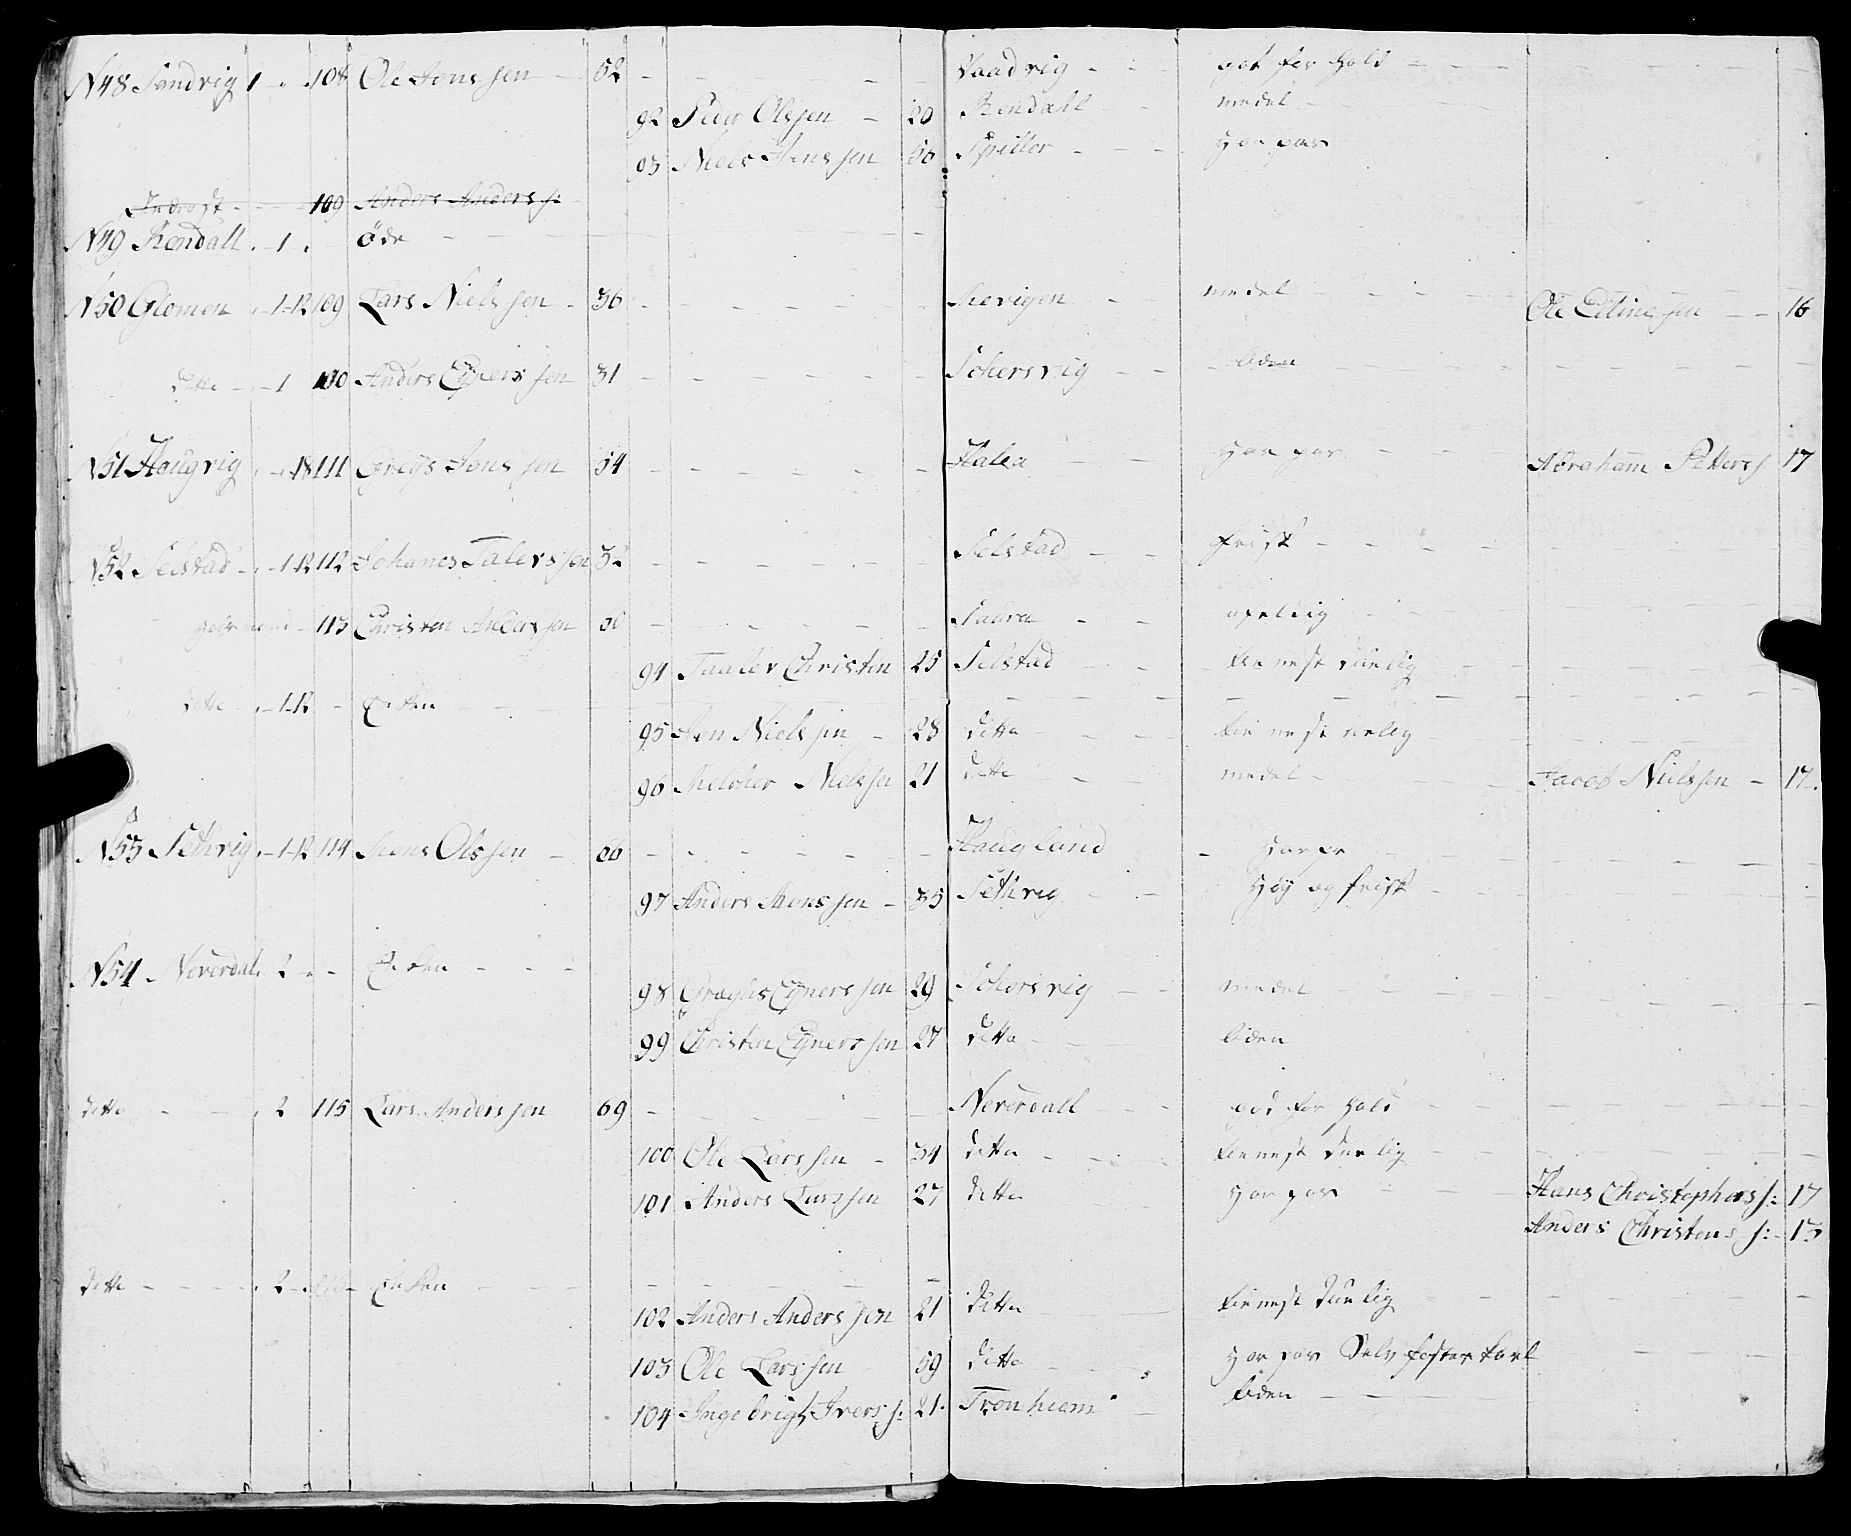 N48 Sandvig 1 - 108 Ole Jens sen - 52 - - Vaadvig - - got for Hold - -
92 Peder Olssen - 20 Rendahl - - medel -
93 Niels Jens sen 50 Speller - - - Har pas
109 Anders Anders s:
N49 Rendall - 1 - öde - -
N50 Glomen - 1-12 109 Lars Niels sen - 36 - - Mevigen - medel - - Ole Ellingsen - - 16
ditte - - 1 110 Anders Eyners sen 31 - - Schersvig - - liden - -
N51 Haugvig - - 18 111 Greys Jens sen 54 - - Halsa - - Har pas - - Abraham Petters 17
N52 Selstad - - 1-12 112 Johanes Talevs sen 32 - - Selstad - - frisk - -
113 Christen Andersen 60 - - Saura - -
94 Taalev Christen 25 Selstad - - tienest due lig - -
ditte - - 1-12 - Enken - -
95 Jen Niels sen - 28 ditto - - tienest
96 Melcher Nielsse 21 ditte - - medel - - Jacob Nielssen - 17.
N53 Sethvig - 1-12 114 Mons Olssen - 66 - - Haugland - Har
97 Anders Mons sen - 35 Sethvig - - Høy og frisk - -
N54 - Neverdal 2 - - Enken - - -
98 Græger Eyners sen 29 Schorsvig - - medel - -
99 Christen Eyners sen 27 ditto - - liden
ditto - - 2 115 Lars Anders sen 69 - - Neverdall - - god for Hold - -
100 Ole Lars sen - 34 ditto - - tienest due lig - -
101 Anders Lars sen 27 ditto - - Har pas - - Hans Christophers s: 17
Anders Christens s: - 13
ditto - - 2 - Enken - -
102 Anders Anders sen 21 ditto - - tienest due lig - -
103 Ole Lars sen 59 ditto - - Har pas Selv foster karl - -
104 Ingebrigt Ivers s: 21. Tronhiem - liden - -